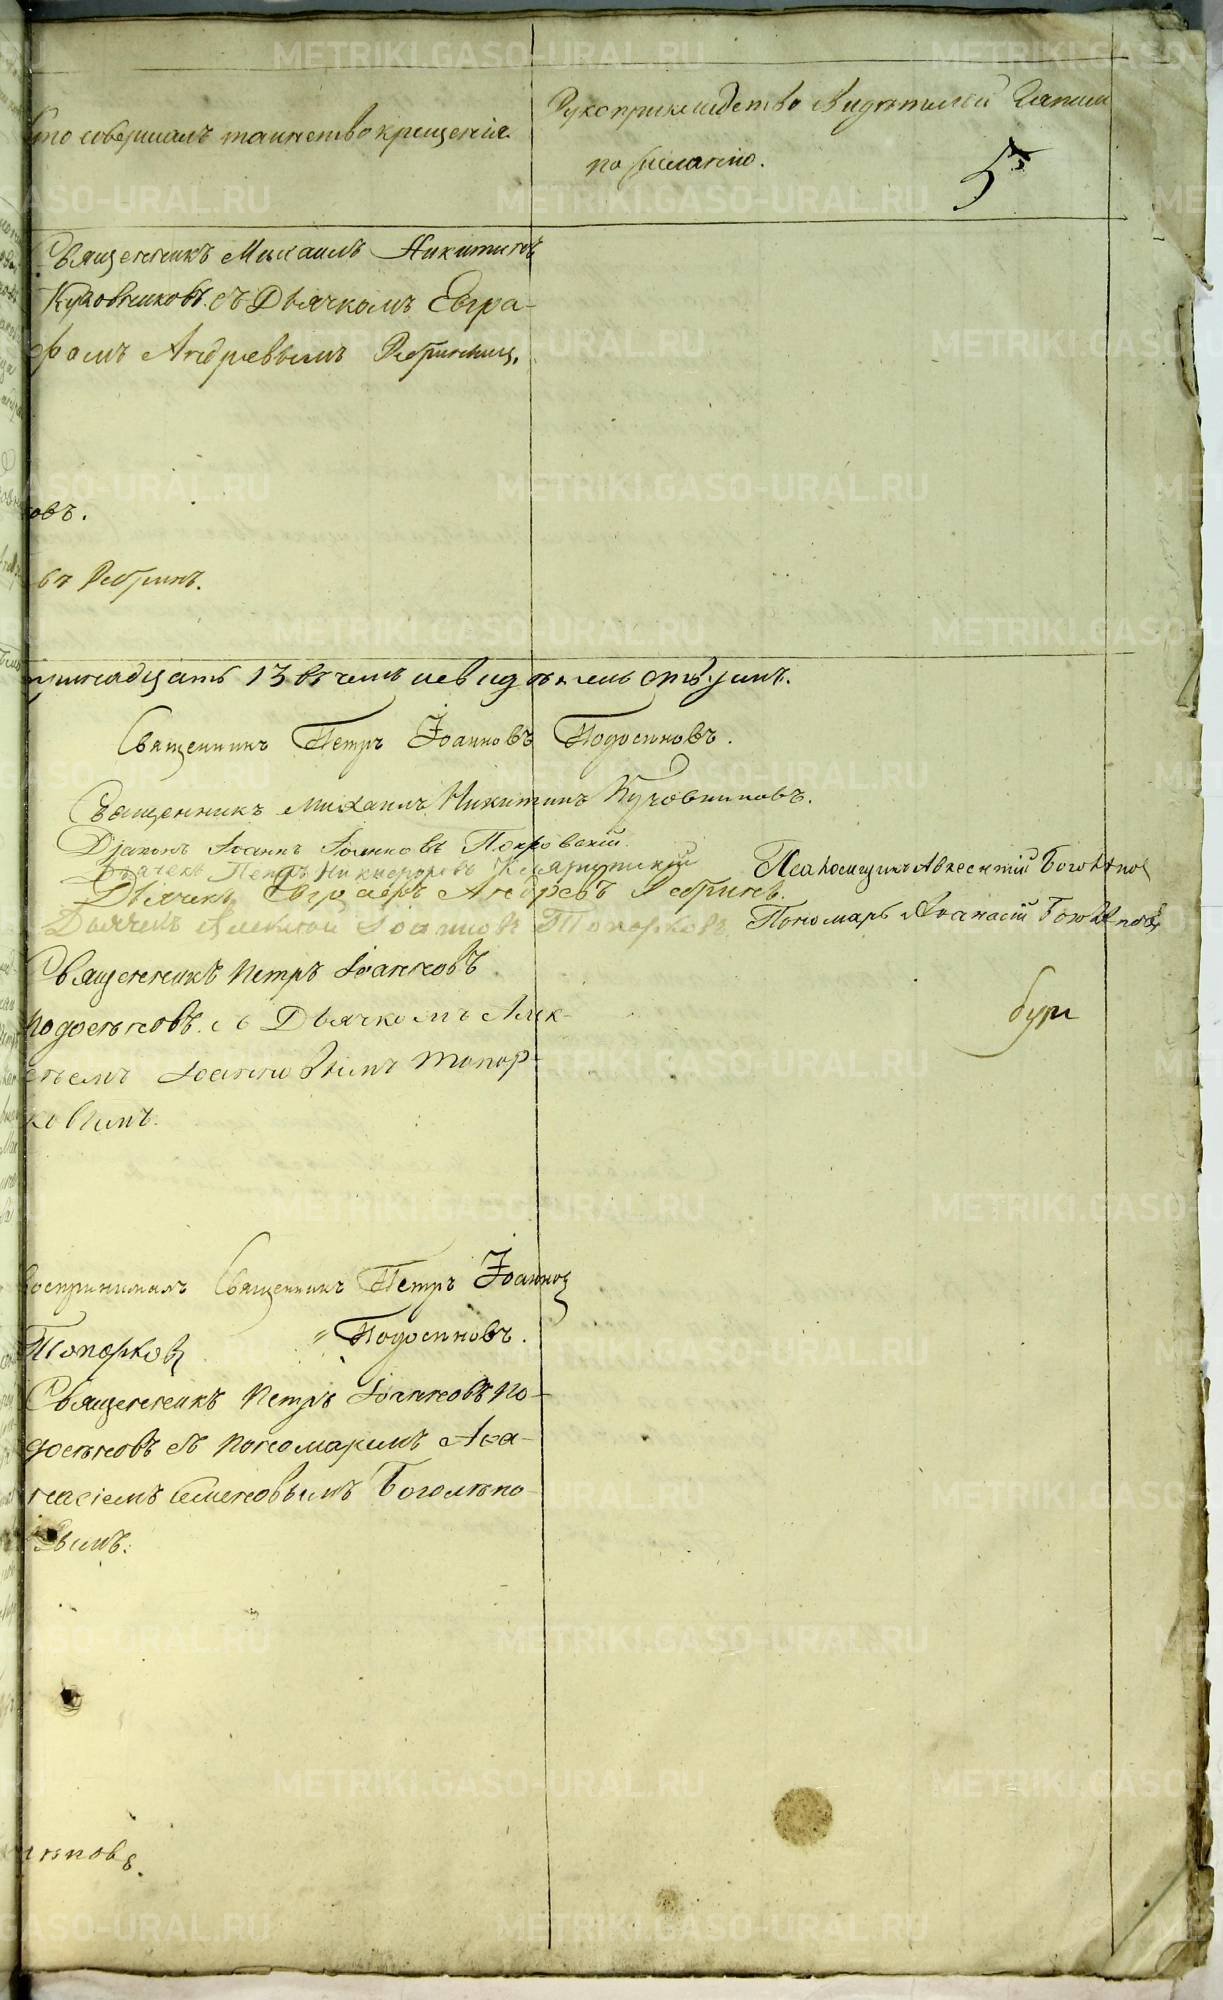 Кто совершалъ таинство крещенія.
Рукоприкладство свидѣтелей записи
по желанію.
5
Священникъ Михаилъ Никитинъ
Кузовниковъ съ Дьячкомъ Евгра-
фомъ Андреевымъ Ребринымъ.
овъ.
въ Ребринъ.
тринадцать 13 въ чемъ и свидѣтельствуемъ.
Священникъ Петръ Іоанновъ Подосеновъ.
Священникъ Михаилъ Никитинъ Кузовниковъ.
Діаконъ Іоаннъ Іоанновъ Покровскій
Дьячекъ Петръ Никифоровъ
Псаломщикъ Авксентій Боголѣпов
Дьячекъ Евграфъ Андреевъ Ребринъ.
Дьячекъ Алексѣй Іоанновъ Топорковъ
Пономарь Аѳанасій Боголѣповъ
Священникъ Петръ Іоанновъ
Подосеновъ съ Дьячкомъ Алек-
сѣемъ Іоанновымъ Топор-
ковымъ.
воспринималъ Священникъ Петръ Іоаннов
Топорков
Подосеновъ.
Священникъ Петръ Іоанновъ По-
досеновъ съ пономаремъ Аѳа-
насіемъ Семеновымъ Боголѣпо-
вымъ.
лѣповъ.
METRIKI.GASO-URAL.RU